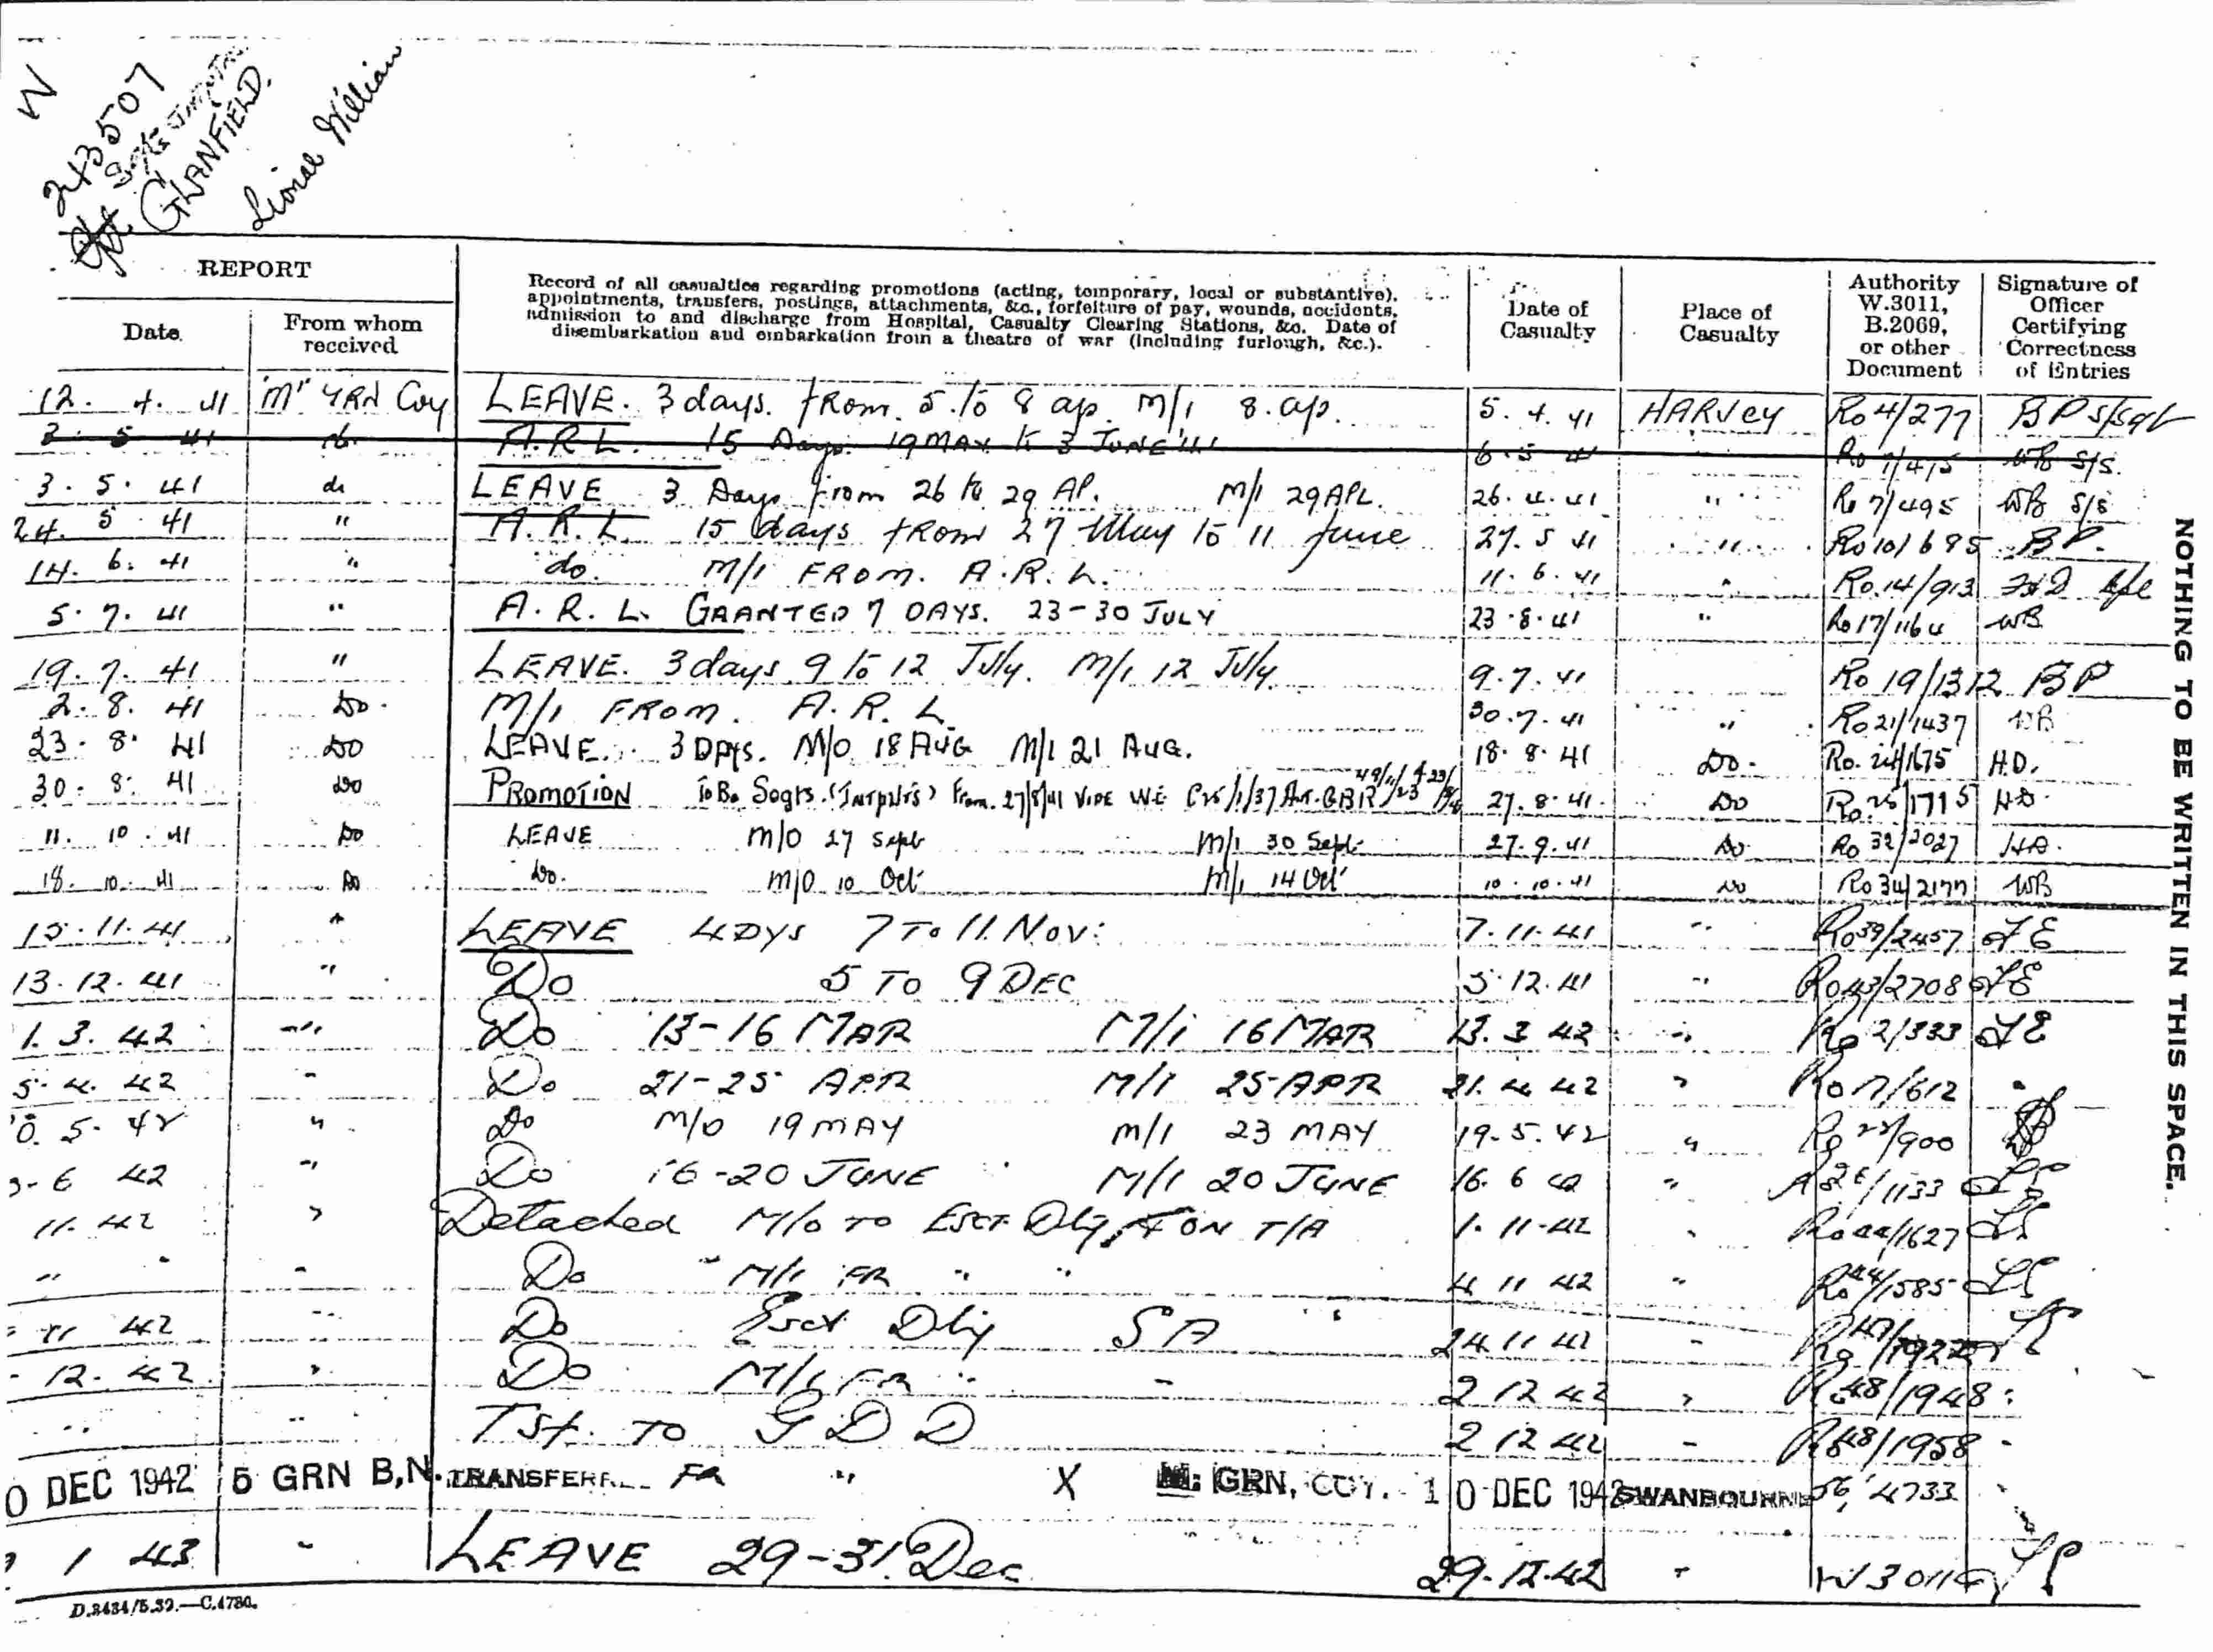 W
243507
GLANFIELD.
Lional William
REPORT
Date.
From whom received
Record of all casualties regarding promotions (acting, temporary, local or substantive), appointments, transfers, postings, attachments, &c., forfeiture of pay, wounds, accidents, admission to and discharge from Hospital, Casualty Clearing Stations, &c. Date of disembarkation and embarkation from a theatre of war (including furlough, &c.).
Date of Casualty
Place of Casualty
Authority W.3011, B.2069, or other Document
Signature of Officer Certifying Correctness of Entries
12. 4. 41 "M" GRN Coy LEAVE. 3 days. from. 5. to 8 ap. M/I 8. ap. 5. 4. 41 HARVEY Ro 4/277 BP S/Sgt
3 5 41 do. A.R.L. 15 Days. 19 MAY to 3 JUNE 41 6 5 41 " Ro 7/415 WB S/S.
3. 5. 41 do LEAVE 3 Days from 26 to 29 AP. M/I 29 APL. 26. 4. 41 " Ro 7/495 WB S/S
24. 5. 41 " A.R.L. 15 days from 27 May to 11 June 27. 5 41 " Ro 10/685 BP.
14. 6. 41 " do. M/I FROM. A.R.L. 11. 6. 41 " Ro. 14/913
5. 7. 41 " A.R.L. GRANTED 7 DAYS. 23-30 JULY 23. 8. 41 " Ro 17/1164 WB
19. 7. 41 " LEAVE. 3 days 9 to 12 July. M/I 12 July. 9. 7. 41 Ro 19/1312 BP
2. 8. 41 Do. M/I FROM. A.R.L. 30. 7. 41 " Ro 21/1437 WB
23. 8. 41 Do LEAVE. 3 DAYS. M/O 18 AUG M/I 21 AUG. 18. 8. 41 Do. Ro. 24/1675 H.D.
30. 8. 41 Do PROMOTION To Be Sogts. (INTPN'rs) From. 27/8/41 VIDE W.E. 27. 8. 41. Do Ro. 25/1715 HD.
11. 10. 41 Do LEAVE M/O 27 Sept M/I 30 Sept. 27. 9. 41 Do Ro 32/2027 HD.
18. 10. 41 Do Do. M/O 10 Oct M/I 14 Oct 10. 10. 41 Do Ro 34/2177 WB
15. 11. 41 " LEAVE 4 DYS 7 TO 11. NOV: 7. 11. 41 " Ro 39/2457 LE
13. 12. 41 " Do 5 TO 9 DEC 5. 12. 41 " Ro 43/2708 LE
1. 3. 42 " Do 13-16 MAR M/I 16 MAR 13. 3 42 " Ro 2/333 LE
5. 4. 42 " Do 21-25 APR M/I 25 APR 21. 4 42 " Ro 17/612 "
0. 5. 42 " Do M/O 19 MAY M/I 23 MAY 19. 5. 42 " Ro 22/900
6 42 " Do 16-20 JUNE M/I 20 JUNE 16. 6 42 " /1133
11. 42 " Detached M/O TO Esct Dty ON T/A 1. 11. 42 " Ro 44/1627
" " Do " M/I FR " " 4 11 42 " Ro 44/1585
11 42 " Do Esct Dty SA " 24 11 42 "
12. 42 " Do M/I FR " " 2 12 42 " Ro 48/1948
" " Tsf. TO G D D 2 12 42 " Ro 48/1958 "
0 DEC 1942 5 GRN B,N. TRANSFERRE FR " X GRN. COY. 10 DEC 1942 SWANBOURNE 4733
1 43 " LEAVE 29-31. Dec 29. 12. 42 " W 3011
D.2434/5.39.—C.4780.
NOTHING TO BE WRITTEN IN THIS SPACE.